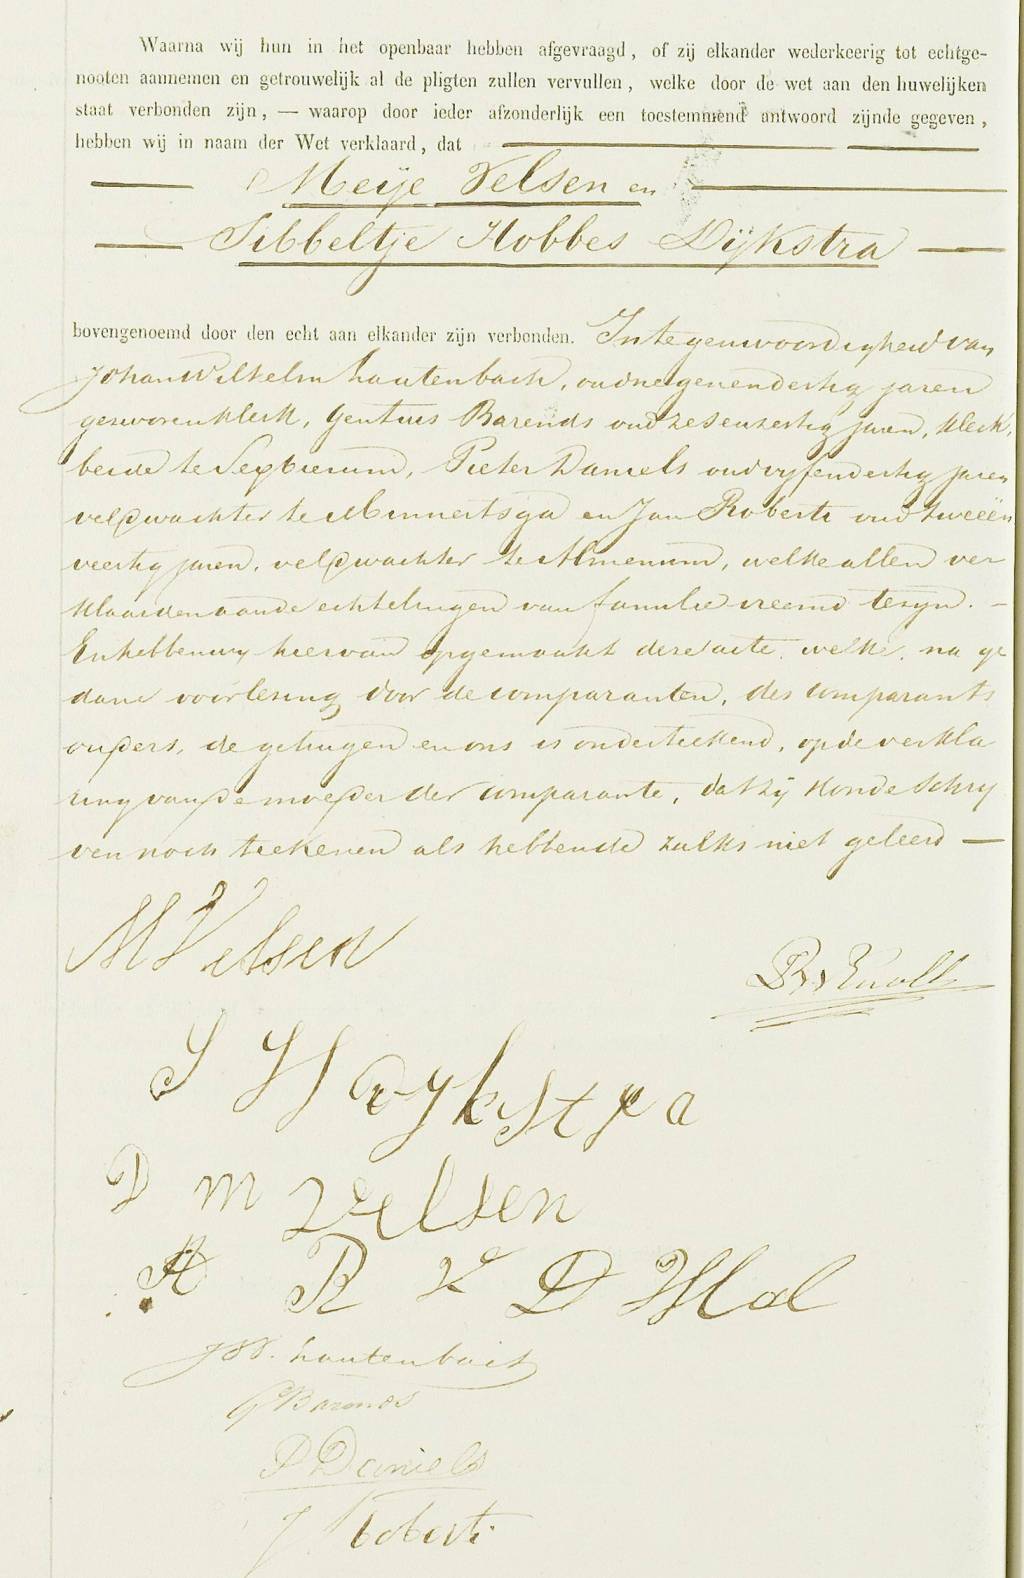 Waarna wij hun in het openbaar hebben afgevraagd, of zij elkander wederkeerig tot echtge-
nooten aannemen en getrouwelijk al de pligten zullen vervullen, welke door de wet aan den huwelijken
staat verbonden zijn, — waarop door ieder afzonderlijk een toestemmend antwoord zijnde gegeven,
hebben wij in naam der Wet verklaard, dat
Meije Velsen en
Sibbeltje Hobbes Dijkstra
bovengenoemd door den echt aan elkander zijn verbonden. In tegenwoordigheid van
Johan Wilhelm Lautenbach, oud negenendertig jaren
gezworen klerk, Gentius Barends oud zesenzestig jaren, klerk,
beide te Sexbierum, Pieter Daniels oud vyfendertig jaren
veldwachter te Minnertsga en Jan Roberti oud tweeën
veertig jaren, veldwachter te Almenum, welke allen ver
klaarden aan de echtelingen van familie vreemd te zyn. —
En hebben wy hiervan opgemaakt deze acte, welke, na ge
dane voorlezing door de comparanten, des comparants
ouders, de getuigen en ons is onderteekend, op de verkla
ring van de moeder der comparante, dat zij konde schry
ven noch teekenen als hebbende zulks niet geleerd —
M Velsen
S H Dykstra
D M Velsen
A R v D Wal
JW. Lautenbach
G Barends
P Daniels
J Roberti